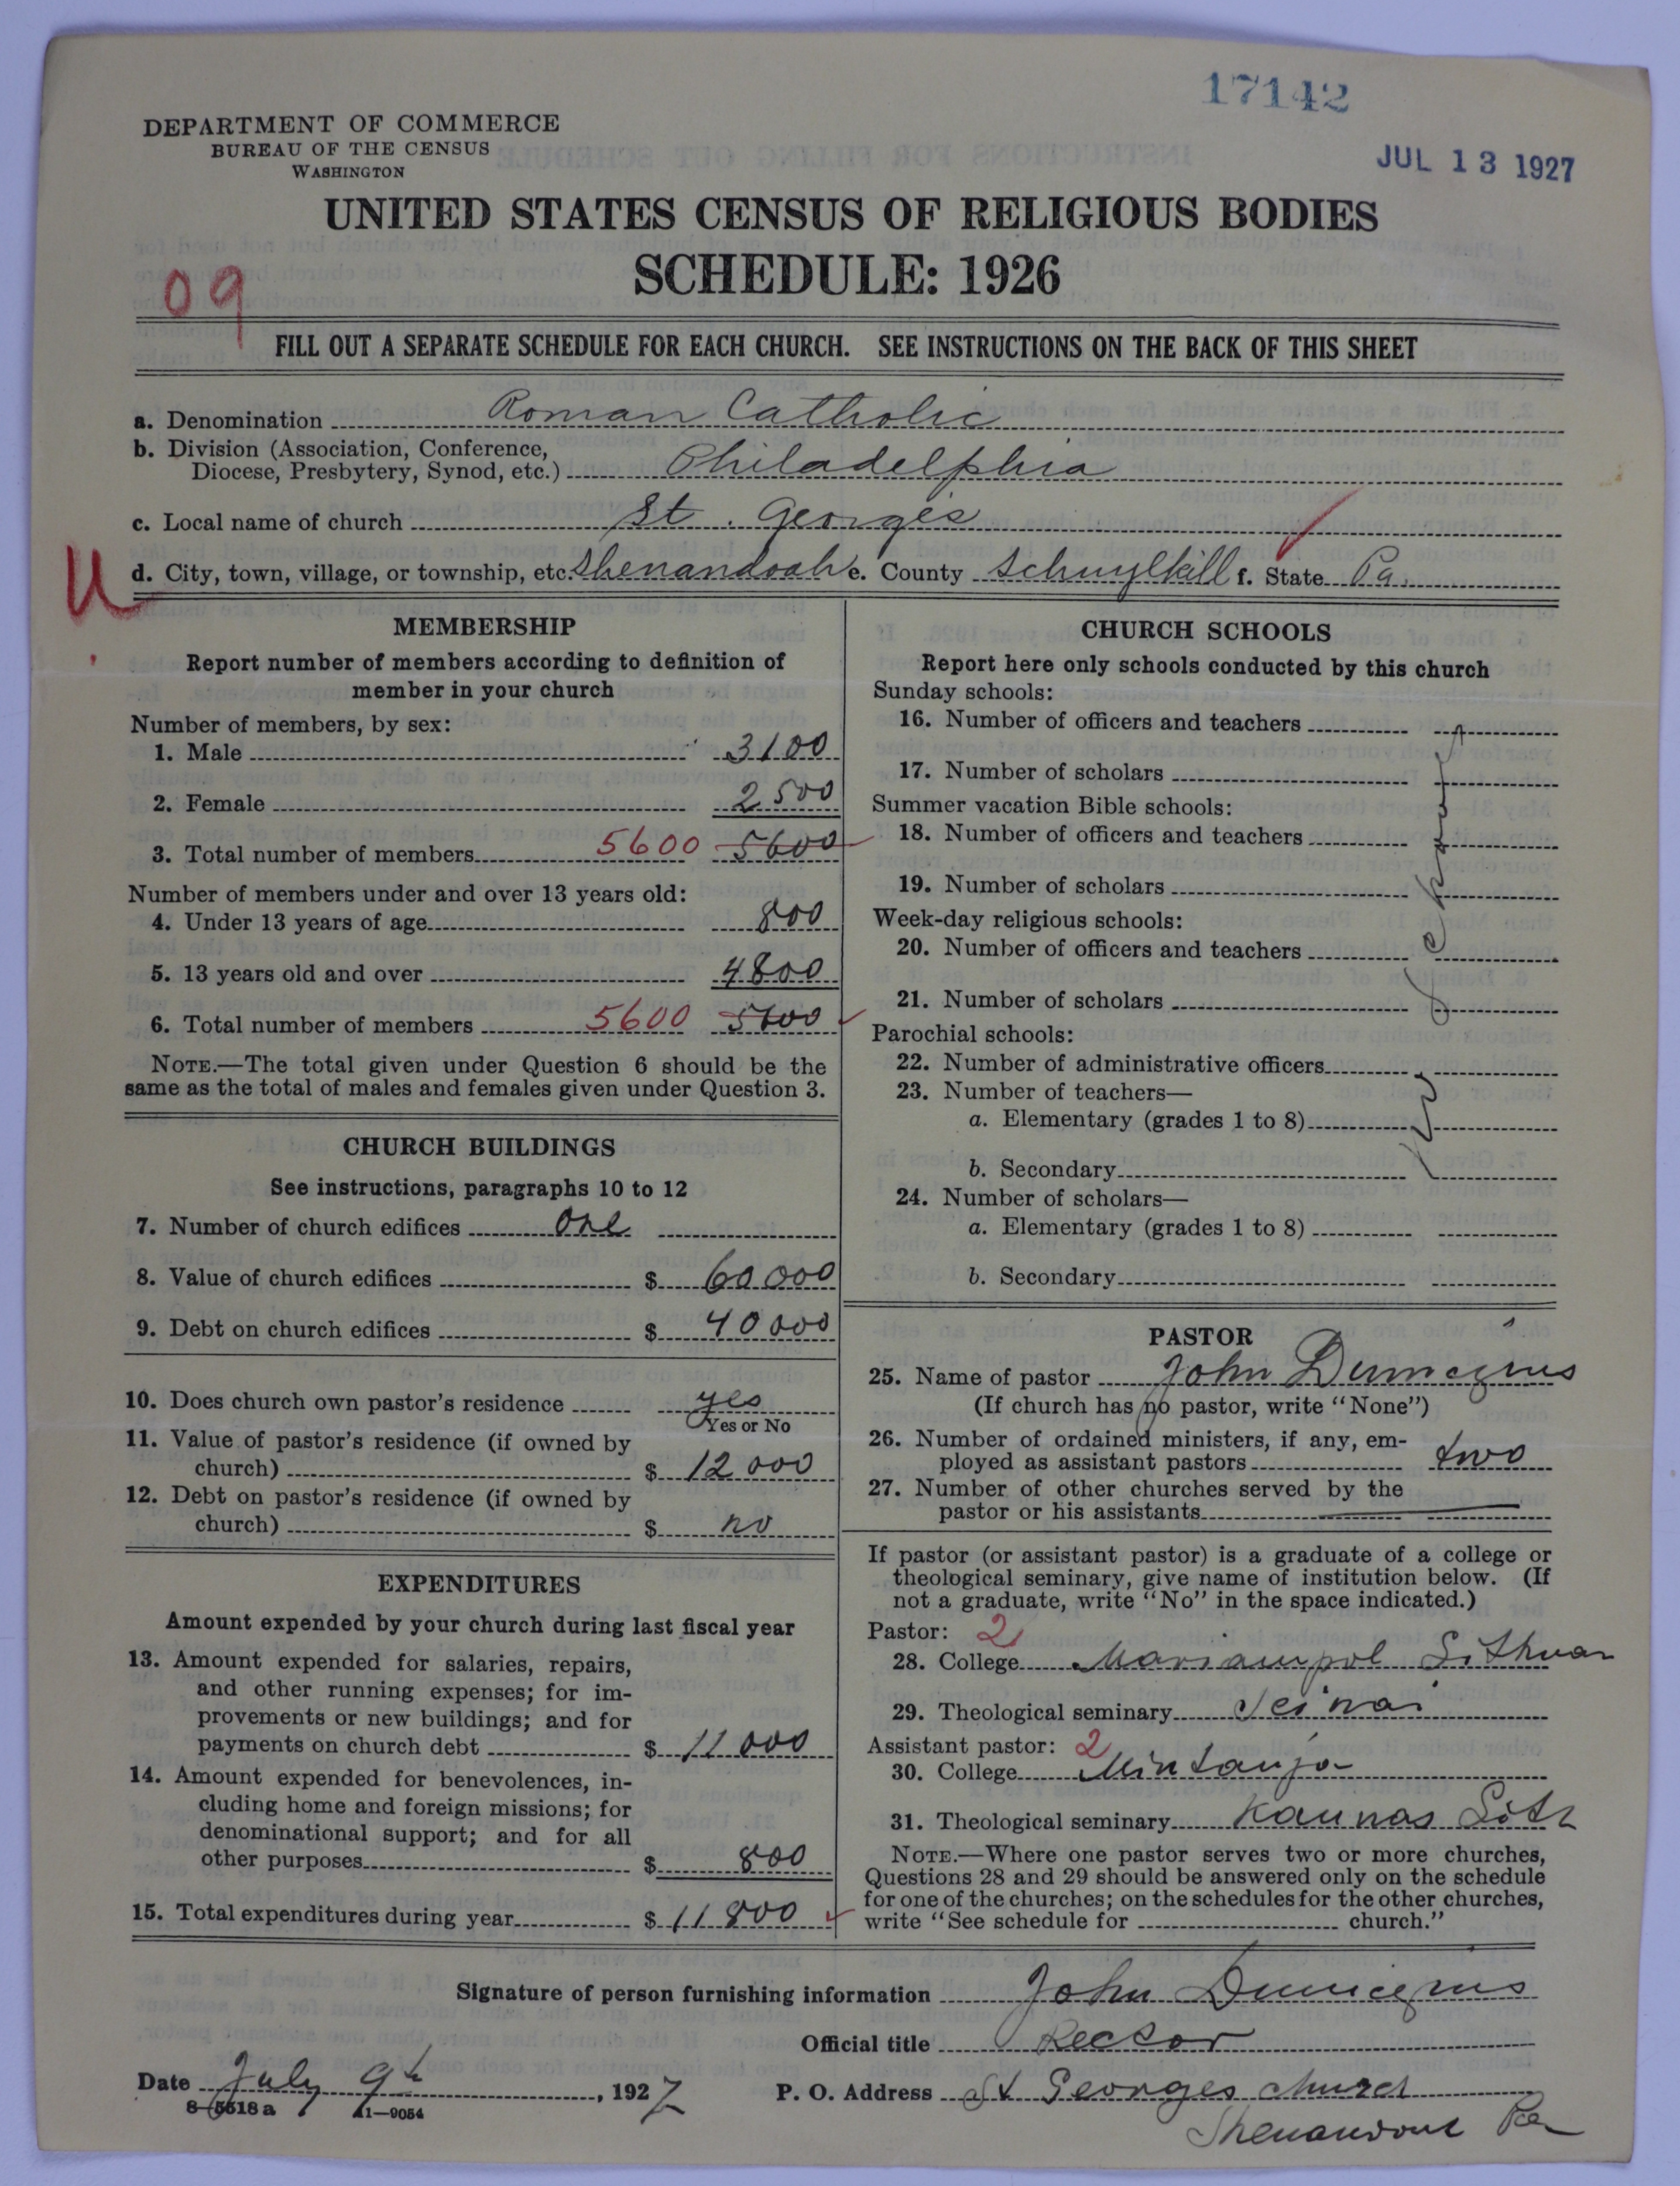 17142
DEPARTMENT OF COMMERCE
BUREAU OF THE CENSUS
WASHINGTON
JUL 13 1927
UNITED STATES CENSUS OF RELIGIOUS BODIES
SCHEDULE: 1926
09
FILL OUT A SEPARATE SCHEDULE FOR EACH CHURCH. SEE INSTRUCTIONS ON THE BACK OF THIS SHEET
a. Denomination Roman Catholic
b. Division (Association, Conference,
Diocese, Presbytery, Synod, etc.) Philadelphia
c. Local name of church St. Georges
U
d. City, town, village, or township, etc. Shenandoah e. County Schuylkill f. State Pa.
MEMBERSHIP
Report number of members according to definition of
member in your church
Number of members, by sex:
1. Male 3100
2. Female 2500
3. Total number of members 5600 5600
Number of members under and over 13 years old:
4. Under 13 years of age 800
5. 13 years old and over 4800
6. Total number of members 5600 5600
NOTE.—The total given under Question 6 should be the
same as the total of males and females given under Question 3.
CHURCH BUILDINGS
See instructions, paragraphs 10 to 12
7. Number of church edifices one
8. Value of church edifices $ 60 000
9. Debt on church edifices $ 40 000
10. Does church own pastor's residence yes
Yes or No
11. Value of pastor's residence (if owned by
church) $ 12 000
12. Debt on pastor's residence (if owned by
church) $ no
EXPENDITURES
Amount expended by your church during last fiscal year
13. Amount expended for salaries, repairs,
and other running expenses; for im-
provements or new buildings; and for
payments on church debt $ 11 000
14. Amount expended for benevolences, in-
cluding home and foreign missions; for
denominational support; and for all
other purposes $ 800
15. Total expenditures during year $ 11 800
CHURCH SCHOOLS
Report here only schools conducted by this church
Sunday schools:
16. Number of officers and teachers
17. Number of scholars
Summer vacation Bible schools:
18. Number of officers and teachers
19. Number of scholars
Week-day religious schools:
20. Number of officers and teachers
21. Number of scholars
Parochial schools:
22. Number of administrative officers
23. Number of teachers—
a. Elementary (grades 1 to 8)
b. Secondary
24. Number of scholars—
a. Elementary (grades 1 to 8)
b. Secondary
PASTOR
25. Name of pastor John
(If church has no pastor, write "None")
26. Number of ordained ministers, if any, em-
ployed as assistant pastors two
27. Number of other churches served by the
pastor or his assistants
If pastor (or assistant pastor) is a graduate of a college or
theological seminary, give name of institution below. (If
not a graduate, write "No" in the space indicated.)
Pastor: 2
28. College Mariampol Lithuan
29. Theological seminary Seinai
Assistant pastor: 2
30. College
31. Theological seminary Kaunas Lith
NOTE.—Where one pastor serves two or more churches,
Questions 28 and 29 should be answered only on the schedule
for one of the churches; on the schedules for the other churches,
write "See schedule for church."
Signature of person furnishing information John
Official title Rector
Date July 9th, 1927
P. O. Address St Georges church
Shenandoah Pa
8-5518a 11—9054